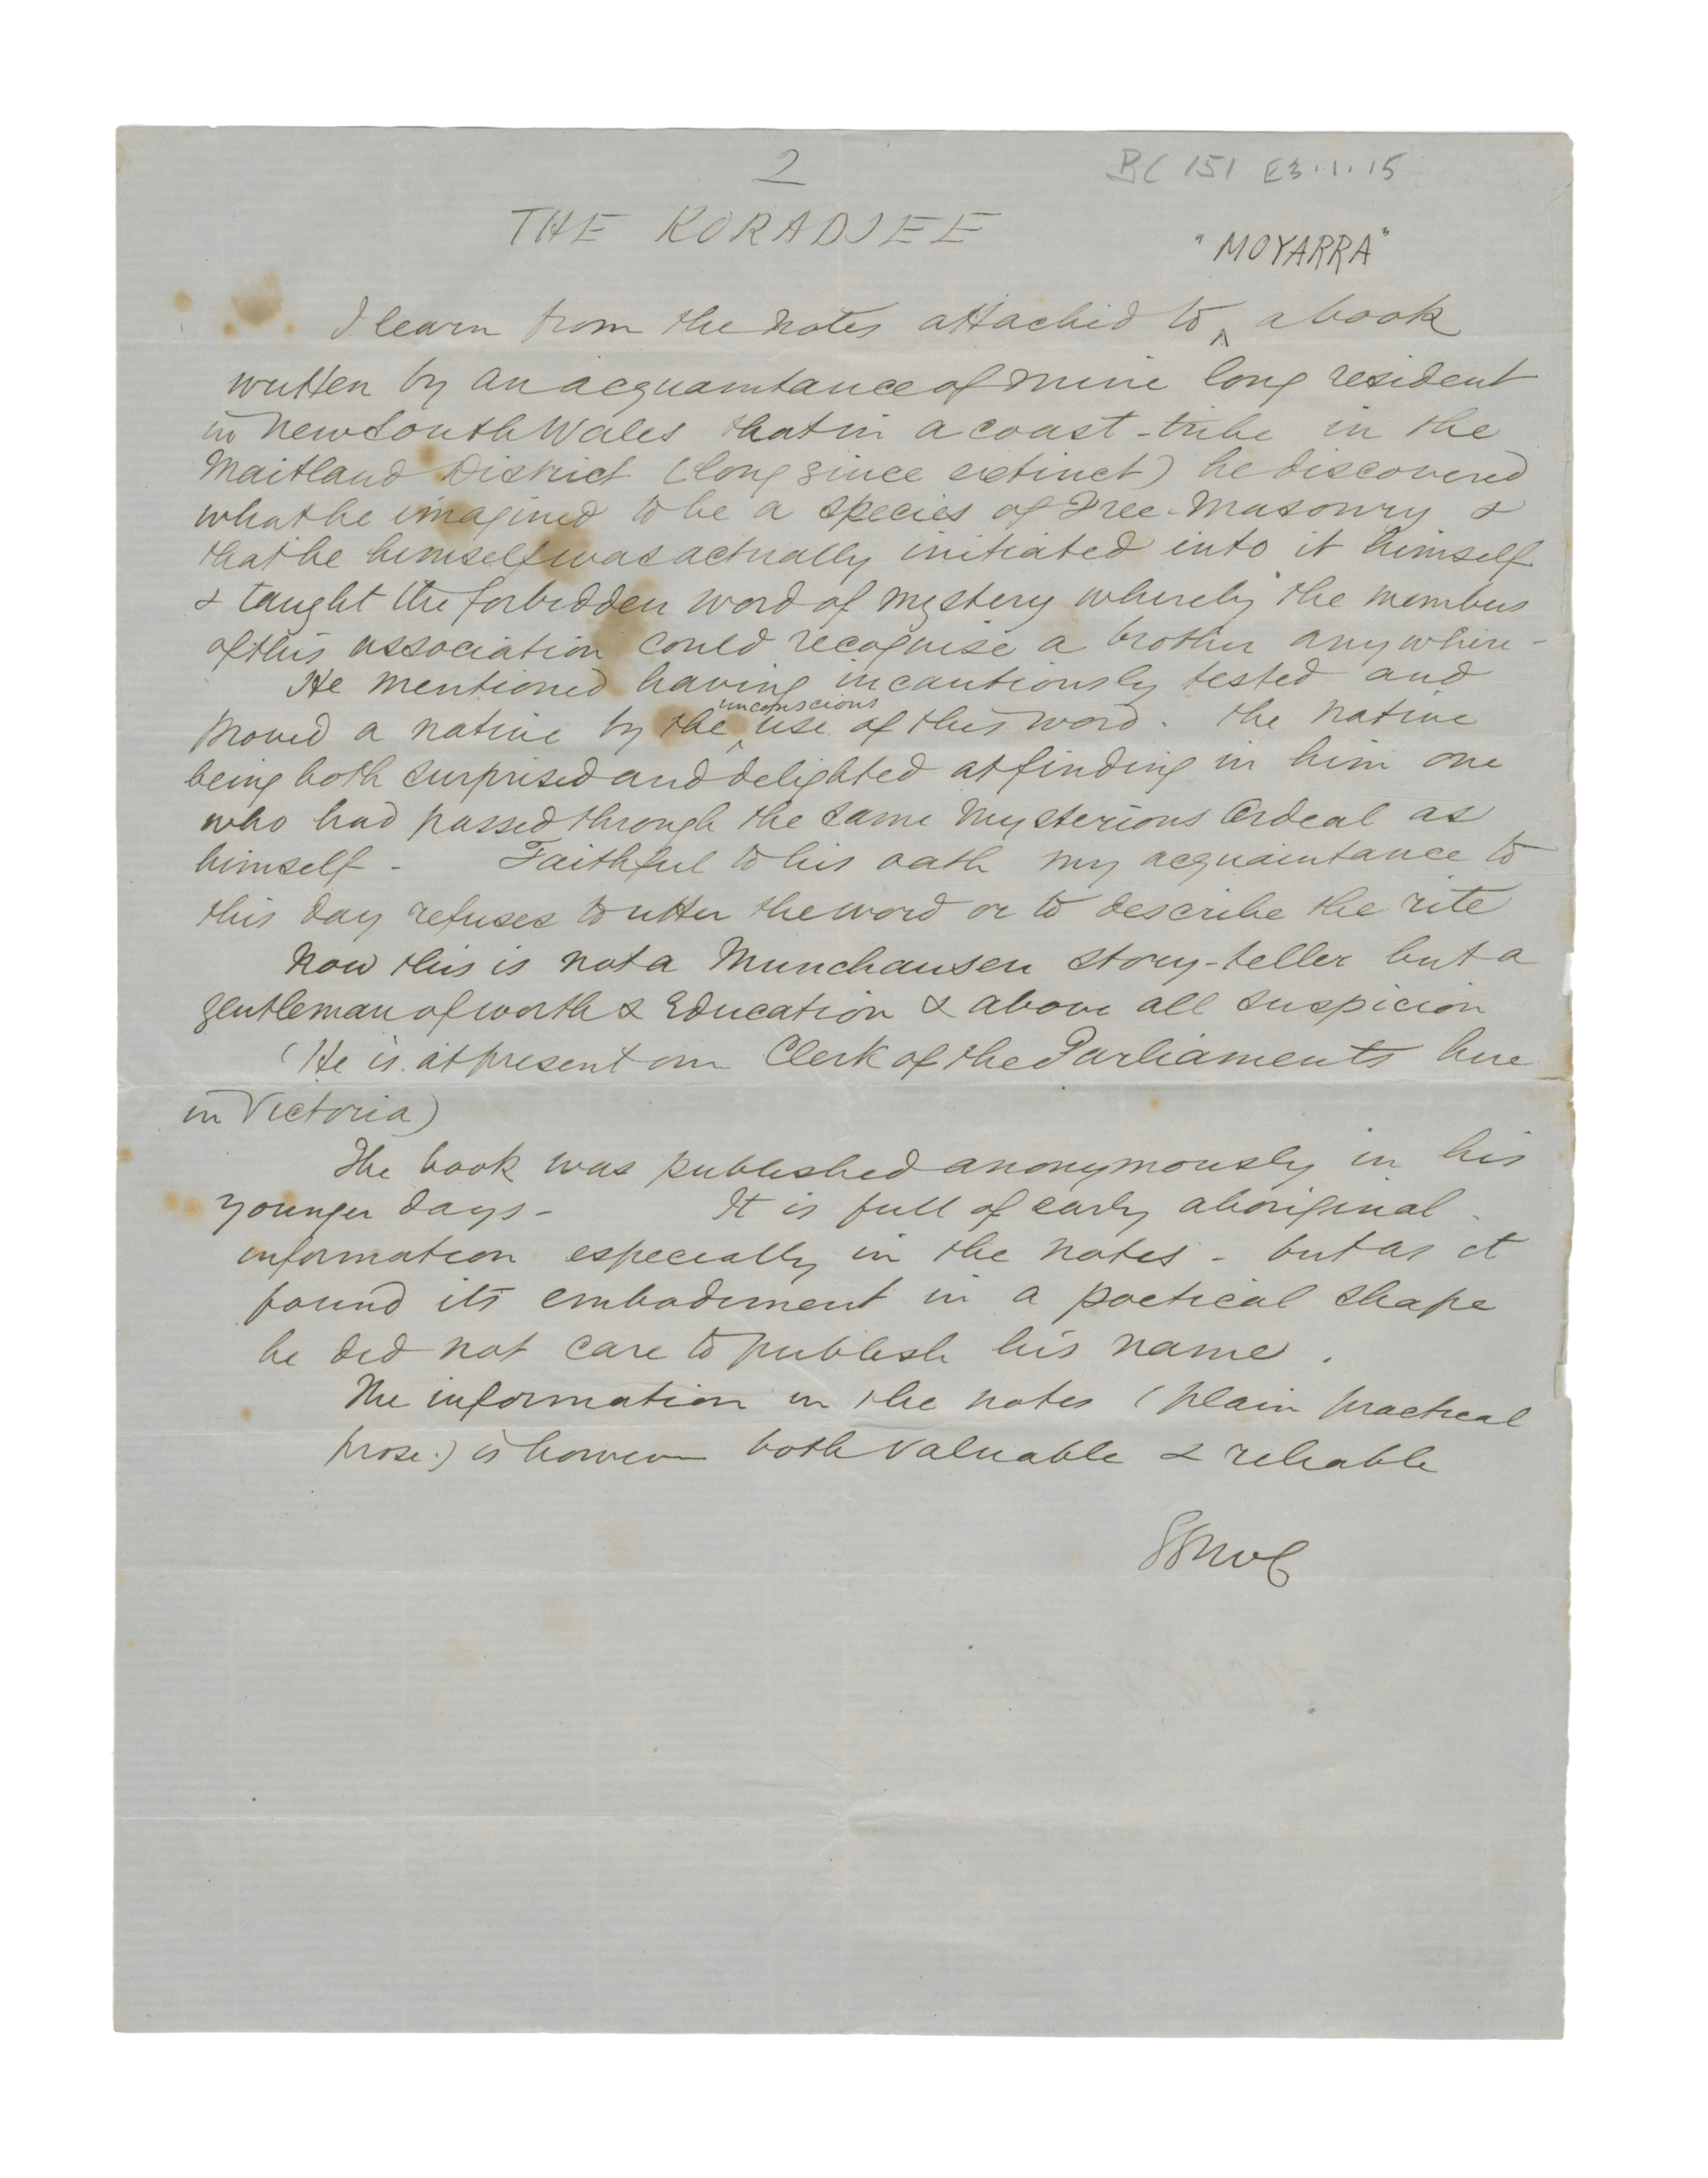 2
BC 151 E3.1.15
THE KORADJEE
"MOYARRA"
I learn from the notes attached to ^ a book
written by an acquaintance of mine long resident
in New South Wales that in a coast-tribe in the
Maitland District (long since extinct) he discovered
what he imagined to be a species of Free-Masonry &
that he himself was actually initiated into it himself
& taught the forbidden word of mystery whereby the members
of this association could recognise a brother anywhere -
He mentioned having incautiously tested and
unconscious
proved a native by the ^ use of this word. The native
being both surprised and delighted at finding in him one
who had passed through the same mysterious Ordeal as
himself - Faithful to his oath my acquaintance to
this day refuses to utter the word or to describe the rite
Now this is not a Munchausen story-teller but a
gentleman of worth & Education & above all suspicion
(He is at present our Clerk of the Parliaments here
in Victoria)
The book was published anonymously in his
younger days - It is full of early aboriginal
information especially in the notes - but as it
found its embodiment in a poetical shape
he did not care to publish his name.
The information in the notes (plain practical
prose.) is however both valuable & reliable